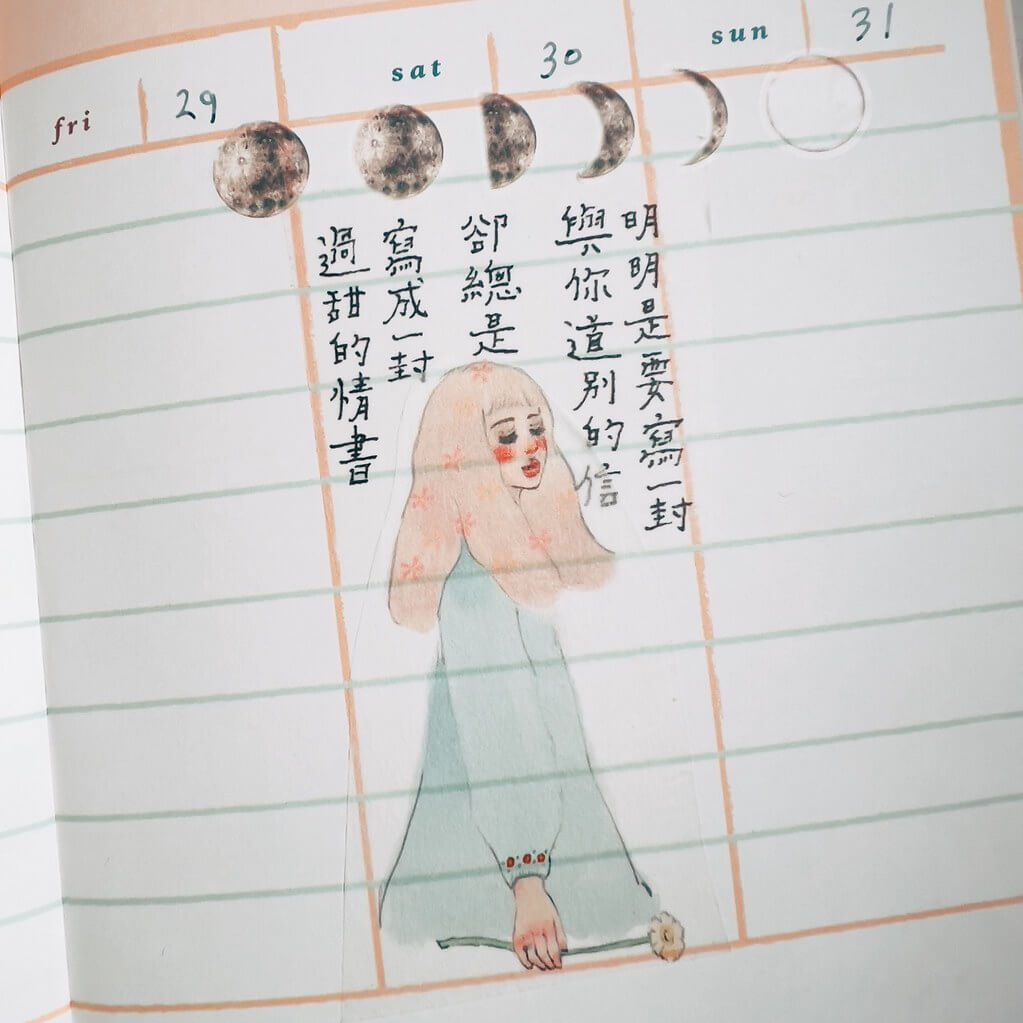 fri 29 sat 30 sun 31
明明是要寫一封
與你道別的信
卻總是
寫成一封
過甜的情書